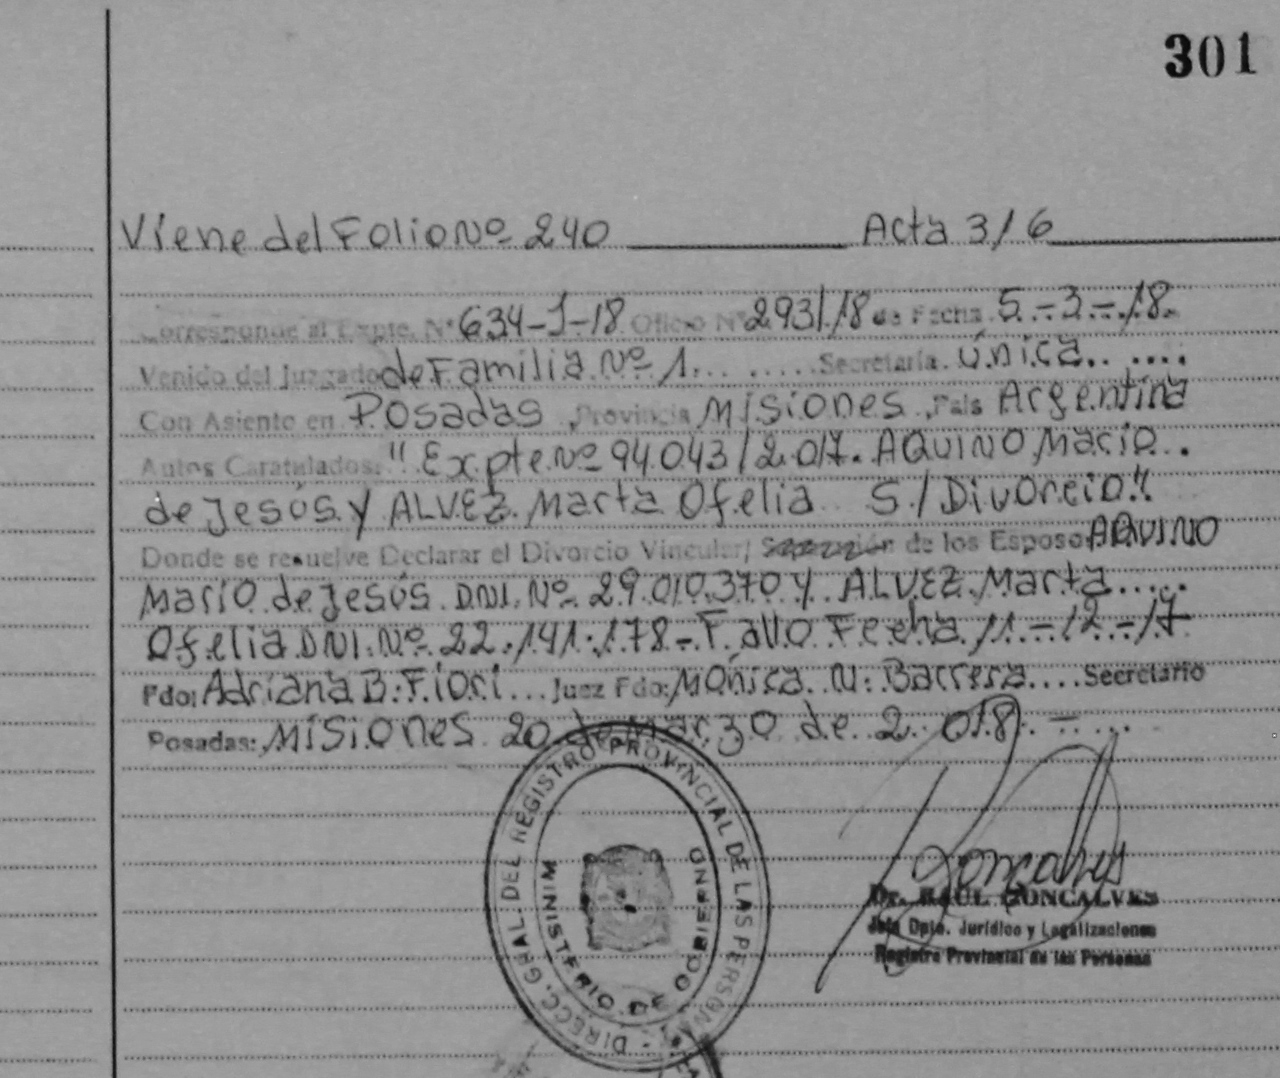 301
Viene del Folio Nº 240 Acta 316
Corresponde al Expte. Nº 634-1-18 Oficio Nº 2931/18 de Fecha 5.-3-.18.
Venido del Juzgado de Familia Nº 1....... Secretaría. Única......
Con Asiento en Posadas, Provincia Misiones, País Argentina
Autos Caratulados: "Expte. Nº 94.043/2.017. AQUINO Mario..
de Jesús y ALVEZ Marta Ofelia S/Divorcio".
Donde se resuelve Declarar el Divorcio Vincular/ Separación de los Esposos AQUINO
Mario de Jesús DNI. Nº 29.010.370 y ALVEZ Marta.....
Ofelia DNI. Nº 22.141.178-Fallo Fecha 11-12-17
Fdo: Adriana B. Fiori... Juez Fdo: Mónica N. Barrera.... Secretario
Posadas: Misiones 20 de Marzo de 2.018.-....
DIRECC. GRAL. DEL REGISTRO PROVINCIAL DE LAS PERSONAS
MINISTERIO DE GOBIERNO
Goncalves
Dr. RAUL GONCALVES
Jefe Dpto. Jurídico y Legalizaciones
Registro Provincial de las Personas